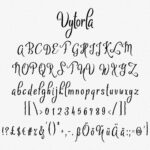 Vytorla
ABCDEFGHIJKLM
NOPQRSTUVWXYZ
abcdefghijklmnopqrstuvwxyz
{[\>0123456789</]}